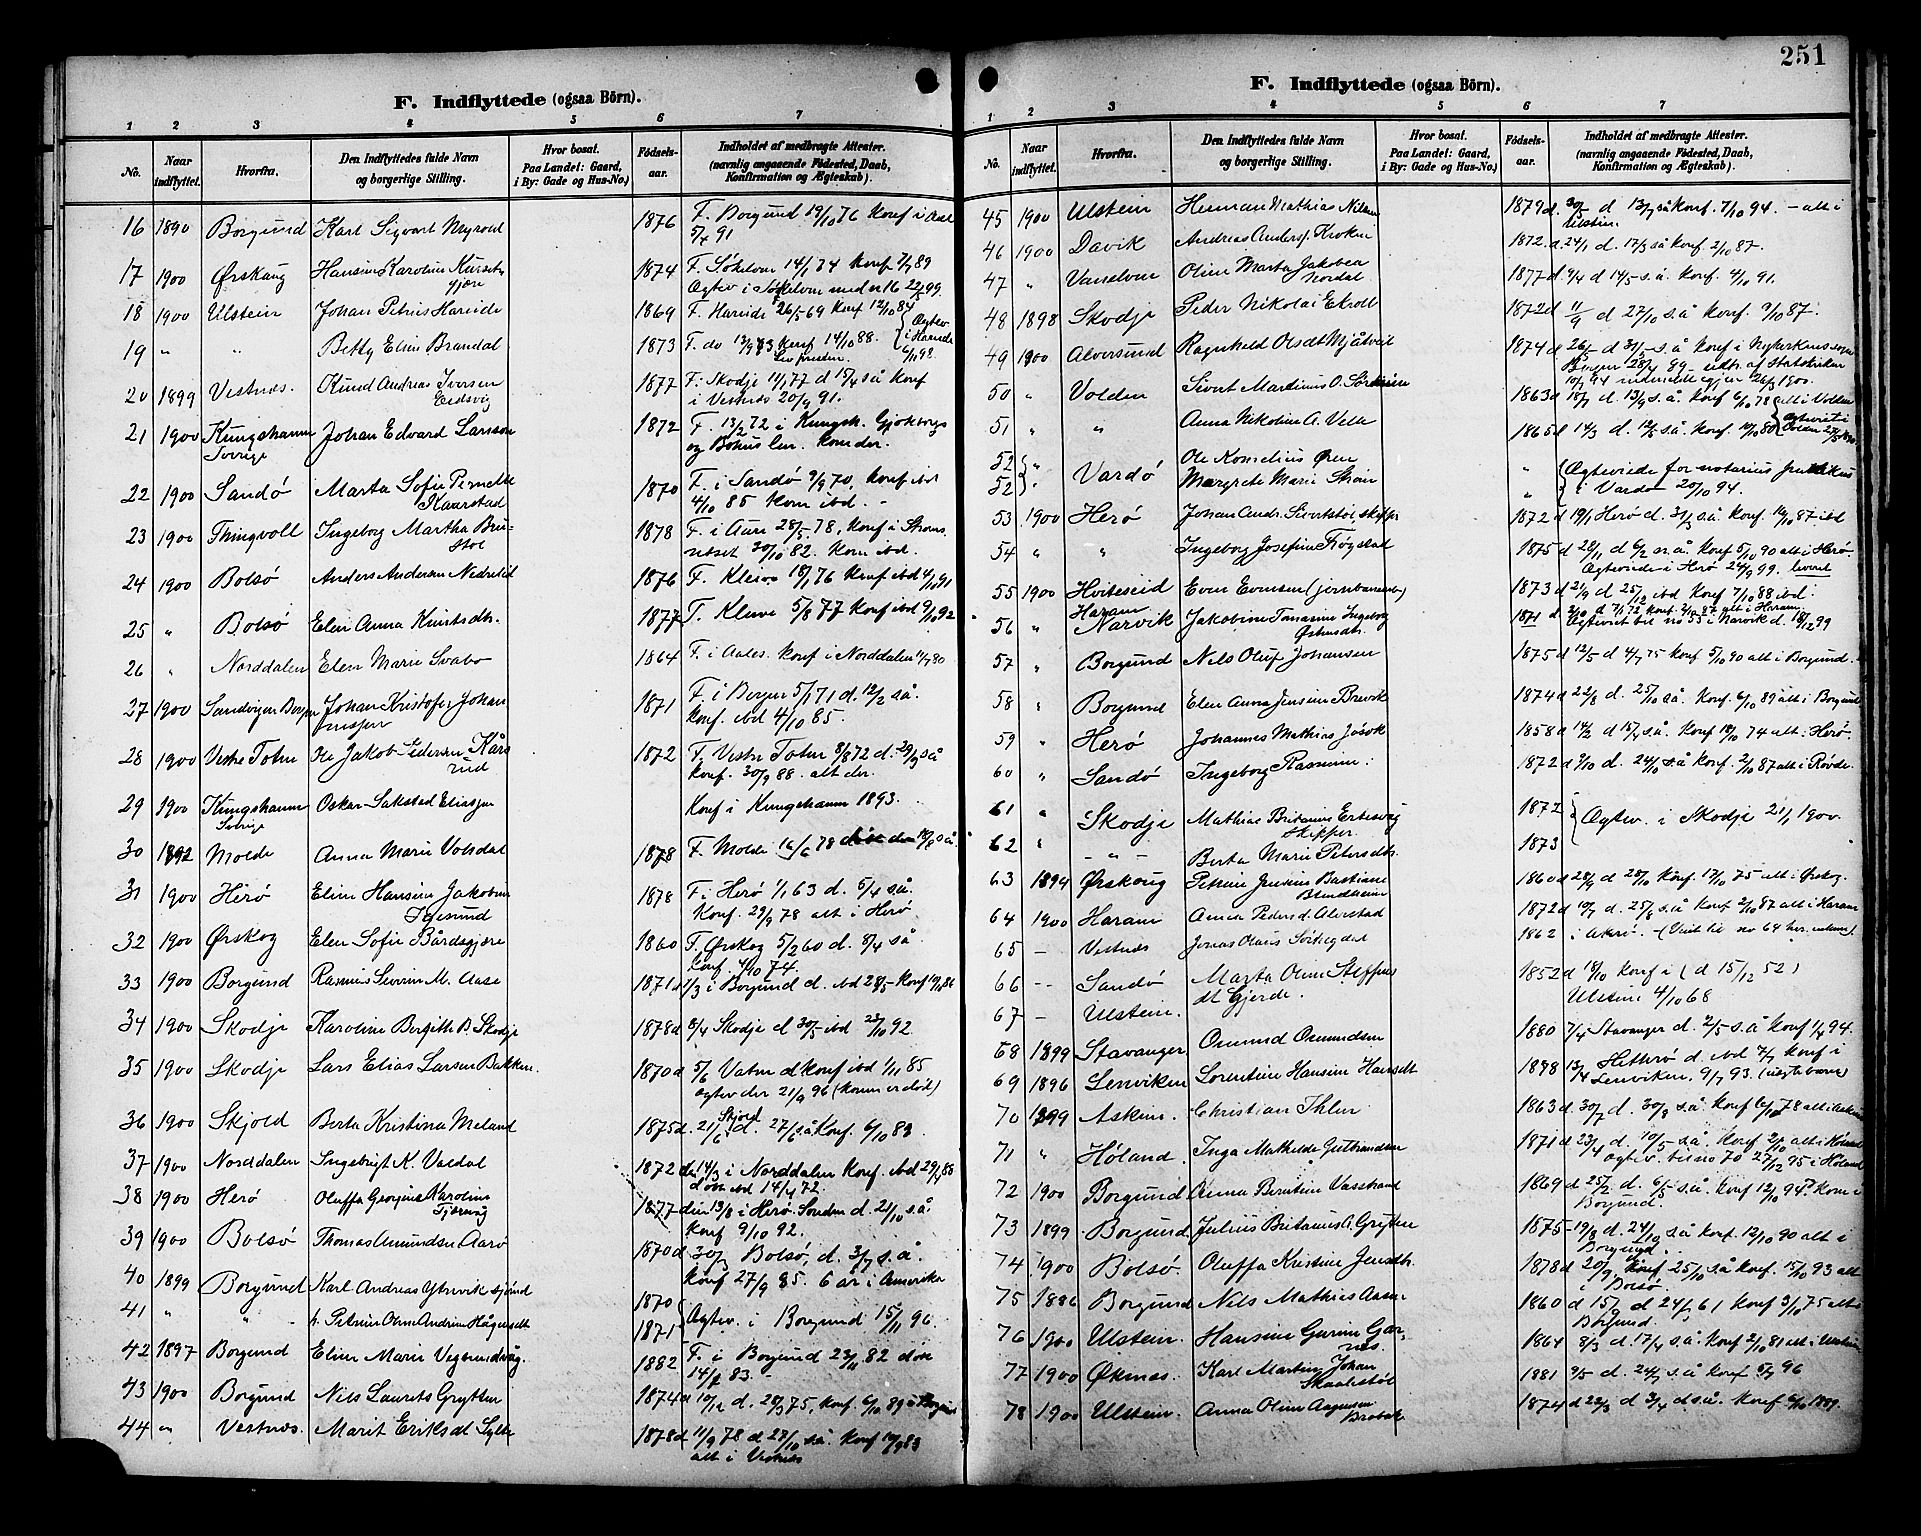 251
F. Indflyttede (ogsaa Börn).
1 2 3 4 5 6 7
No. Naar indflyttet. Hvorfra. Den Indflyttedes fulde Navn og borgerlige Stilling. Hvor bosat. Paa Landet: Gaard, i By: Gade og Hus-No.) Fødsels-aar. Indholdet af medbragte Attester. (navnlig angaaende Fødested, Daab, Konfirmation og Ægteskab).
16 1890 Borgund Karl Sigvart Myrold 1876 F. Borgund 19/10 76 Konf i Aal
5/4 91
17 1900 Ørskaug Hansine Karoline 1874 F. Søkelven 14/1 74 Konf 7/7 89
gjære Ogtev i Søkelven med n 16 22/5 99.
18 1900 Ulstein Johan Petrius Hareide 1869 F. Hareide 26/5 69 Konf 12/10 84
19 " " Betty Eline Brandal 1873 F. do 13/9 73 Konf 14/10 88. { Ogtev i Hareide 6/10 98.
20 1899 Vestnæs. Knud Andreas Iversen 1877 F. Skodje 11/1 77 d 15/4 så Konf
Eidsvig i Vestnæs 20/9 91.
21 1900 Kungshamn Johan Edvard Larsson 1872 F. 13/2 72 i Kungsh. Gjøteborgs
Sverige og Bohus len. Kom der.
22 1900 Sandø Marta Sofie Pernelle 1870 F. i Sandø 9/9 70, Konf ibd
Kaarstad 4/10 85 Kom ibd. -
23 1900 Thingvoll Ingeborg Martha Bru- 1878 F. i Aure 28/5 78, Konf i Strøms
stol 30/10 82. Kom ibd.
24 1900 Bolsø Anders Andersen Nedrelid 1876 F. Kleive 18/1 76 Konf ibd 4/10 91
25 " Bolsø Elen Anna Knutsdtr. 1877 F. Kleive 5/8 77 Konf ibd 9/10 92
26 " Norddalen Elen Marie Svabo 1864 F. i Aales. Konf i Norddalen 11/7 80
27 1900 Sandvigen Bergen Johan Kristofer Johan 1871 F. i Bergen 5/1 71 d. 12/2 så.
nesen Konf. ibd 4/10 85.
28 1900 Vestre Toten Ole Jakob Pedersen Kårs 1872 F. Vestre Toten 8/8 72 d. 29/9 så
rud Konf. 30/9 88. alt der.
29 1900 Kungshamn Oskar Sakstad Eliasen Konf i Kungshamn 1893.
Sverige
30 1892 Molde Anna Marie Volsdal 1878 F. Molde 16/6 78 18/8 så
31 1900 Herø Eline Hansine Jakobsen 1878 F. i Herø 1/1 63 d. 5/4 så.
Igesund Konf. 29/9 78 alt i Herø
32 1900 Ørskog Elen Sofie Bårdsgjære 1860 F. Ørskog 5/2 60 d. 8/4 så
Konf. 4/10 74.
33 1900 Borgund Rasmus Severin M. Aase 1871 d 1/3 i Borgund d. ibd 28/5 Konf 10/10 86
34 1900 Skodje Karoline Bergithe B. Skodje 1878 d 8/4 Skodje d 30/5 ibd 23/10 92.
35 1900 Skodje Lars Elias Larsen Bakken 1870 d 5/6 Vatne d Konf ibd 1/11 85
Ogtev der 21/9 96 (Konen er død)
36 1900 Skjold Berta Kristina Meland 1875 d. 21/6 Skjold d. 27/6 så Konf. 6/10 83
37 1900 Norddalen Ingebrigt K. Valdal 1872 den 14/3 i Norddalen Konf. ibd 29/9 86
døbt ibd 14/4 72.
38 1900 Herø Oluffa Georgine Karoline 1877 den 13/8 i Herø. Sønden d. 21/10 s.å.
Tjørvåg Konf 9/10 92.
39 1900 Bolsø Thomas Amundsen Aarø 1870 d 30/3 Bolsø, d. 3/7 s.å.
Konf 27/9 85. 6 år i Amerika
40 1899 Borgund Karl Andreas Ytrevik sjømd 1870
41 " " h. Petrine Oline Andrine Hågensdt 1871 { Ogtev. i Borgund 15/11 96.
42 1897 Borgund Eline Marie Vegsundvåg. 1882 F. i Borgund 23/11 82 døbt
14/1 83. -
43 1900 Borgund Nils Laurits Grytten 1874 d 10/12 d. 28/3 75, Konf. 6/10 89 i Borgund
44 " Vestnæs. Marit Eriksdt Sylte 1878 d 11/9 78 d 27/10 s.å. Konf 10/9 83
alt i Vestnæs
F. Indflyttede (ogsaa Börn).
1 2 3 4 5 6 7
No. Naar indflyttet. Hvorfra. Den Indflyttedes fulde Navn og borgerlige Stilling. Hvor bosat. Paa Landet: Gaard, i By: Gade og Hus-No.) Fødsels-aar. Indholdet af medbragte Attester. (navnlig angaaende Fødested, Daab, Konfirmation og Ægteskab).
45 1900 Ulstein Herman Mathias Nilsen 1879 d. 30/5 d 13/7 så Konf. 7/10 94. - alt i
Ulstein.
46 1900 Davik Andreas Anders. Kroken 1872 d 24/1 d. 17/3 så Konf 2/10 87.
47 " Vanelven Oline Marta Jakobea 1877 d 2/4 d 14/5 s.å. Konf. 4/10 91.
Nordal
48 1898 Skodje Peder Nikolai Ekroll 1872 d 11/9 d 27/10 s.å Konf. 9/10 87.
49 1900 Alversund Ragnhild Olsdt Mjåtveit 1874 d 26/5 d 31/5 s.å Konf i Nykirkens sogn
Bergen 28/4 89 - udtr. af Statskirken
10/9 94 26/3 1900.
50 " Volden Sivert Martinus O. 1863 d 18/7 d. 13/9 s.å. Konf 6/10 78 alt i Volden
51 " " Anna Nikoline A. Velle 1865 d 14/3 d. 12/5 s.å. Konf. 10/10 80 { Ogteviet i Volden
52 " Vardø Ole Kornelius Øien " { Ogteviede for notarius publikus
52 " Margrete Marie Strøm " i Vardø 20/10 94.
53 1900 Herø Johan Andr. Sivertstøl, skipper 1872 d 19/1 Herø d. 31/3 s.å. Konf. 10/10 87 ibd
54 " " Ingeborg Josefine Frøystad 1875 d 28/11 d 6/2 n.å. Konf 5/10 90 alt i Herø.
Ogteviede i Herø 24/9 99.
55 1900 Hviteseid Even Evensen (jernbanem) 1873 d 21/9 d 25/12 ibd Konf 7/10 88 ibd.
56 " Haram Narvik Jakobine Tomasine Ingeborg 1871 d 2/10 d 7/1 72 Konf. 2/10 87 alt i Haram
Østensdtr. Ogteviet til no 55 i Narvik d. 18/12 99
57 " Borgund Nils Oluf Johansen 1875 d 12/5 d 4/7 75 Konf 5/10 90 alt i Borgund.
58 " Borgund Elen Anna Jensine Brevik 1874 d 22/8 d. 25/10 s.å. Konf. 6/10 89 alt i Borgund
59 " Herø Johannes Mathias Jøsok 1858 d 14/2 d 15/4 så. Konf 18/10 74 alt i Herø.
60 " Sandø Ingeborg Rasmine 1872 d 9/10 d. 24/10 s.å Konf. 2/10 87 alt i Røvde.
61 " Skodje Mathias Britanus Ertesvåg 1872 { Ogtev. i Skodje 21/1 1900.
Skipper.
62 " - " - Berta Marie Petersdtr. 1873
63 1894 Ørskoug Petrine Jensine Bastiane 1860 d 28/9 d 28/10 Konf. 17/10 75 alt i Ørskog.
Blindheim
64 1900 Haram Anna Pedersd. Alvestad 1872 d 10/7 d. 25/8 s.å. Konf 2/10 87 alt i Haram
65 - Vestnæs Jonas Olaus 1862 i Akrø. - (Viet til no 64 her ovenn).
66 - - Sandø Marta Oline Steffens 1852 d 18/10 Konf i (d 15/12 52)
dt Gjerde.
67 - Ulstein. Ulstein 4/10 68
68 1899 Stavanger Osmund Osmundsen 1880 7/4 Stavanger d. 2/5 s.å Konf 1/4 94.
69 1896 Lenviken Lorentine Hansine Hansdt 1878 13/4 Hitterø d. ibd 7/7 Konf i
Lenviken. 9/7 93. (uægte barn)
70 1899 Askim. Christian Thlen 1863 d 30/7 d. 30/8 s.å Konf 6/10 78 alt i Askim
71 " Høland. Inga Mathilde Gulbrandsen 1871 d 23/4 d. 10/5 s.å. Konf 2/10 alt i Høland
Ogtev. til no 70 27/12 95 i Høland
72 1900 Borgund Anna Berntine Vasstrand 1869 d 25/2 d. 6/5 s.å Konf 12/10 94 kom i
Borgund.
73 1899 Borgund Julius Britanus A. Grytten 1875 19/8 d. 24/10 s.å Konf 12/10 90 alt i
Borgund.
74 1900 Bolsø. Oluffa Kristine Jensdtr. 1878 d 20/9 Konf 25/10 så Konf. 15/10 93 alt
i Bolsø.
75 1886 Borgund Nils Mathias Aasen 1860 d 15/9 d 24/2 61 Konf 3/10 75 alt i
Borgund.
76 1900 Ulstein. Hansine Gurine Gar- 1864 8/3 d. 17/4 s.å Konf 2/10 81 alt i Ulstein
nes.
77 1900 Øknes. Karl Martin Johan 1881 9/5 d. 24/7 s.å Konf 5/7 96
Skaalestøl
78 1900 Ulstein. Anna Oline Aagesen 1874 d 22/3 d 3/4 d s.å. Konf 6/10 1889.
Brobak